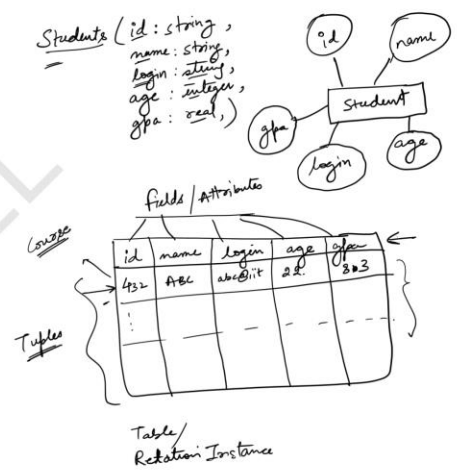 Students ( id : string ,
name : string,
login : string,
age : integer,
gpa : real, )
id
name
Student
gpa
login
age
Fields / Attributes
Course
id name login age gpa
432 ABC abc@iit 22. 8.3
Tuples
Table /
Relation Instance